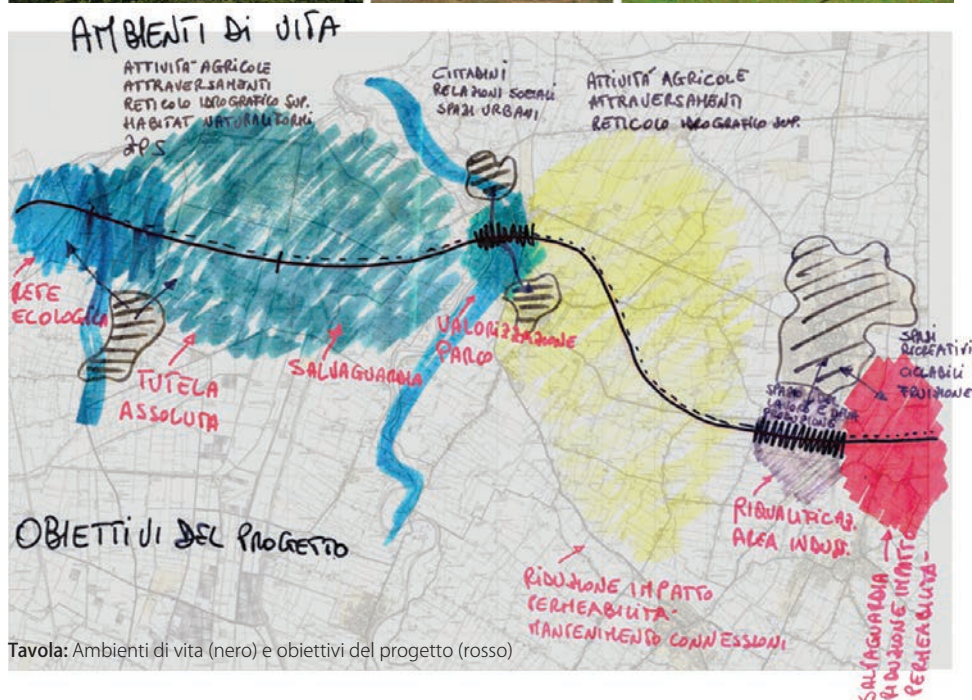 AMBIENTI DI VITA
ATTIVITA' AGRICOLE
ATTRAVERSAMENTI
RETICOLO IDROGRAFICO SUP.
HABITAT NATURALIFORMI
ZPS
CITTADINI
RELAZIONI SOCIALI
SPAZI URBANI
ATTIVITA' AGRICOLE
ATTRAVERSAMENTI
RETICOLO IDROGRAFICO SUP.
RETE
ECOLOGICA
TUTELA
ASSOLUTA
SALVAGUARDIA
VALORIZZAZIONE
PARCO
SPAZI
RICREATIVI
CICLABILI
FRUIZIONE
SPAZIO DEL
LAVORO E DELLA
PRODUZIONE
RIQUALIFICAZ.
AREA INDUST.
OBIETTIVI DEL PROGETTO
RIDUZIONE IMPATTO
PERMEABILITA'
MANTENIMENTO CONNESSIONI
SALVAGUARDIA
RIDUZIONE IMPATTO
PERMEABILITA'
Tavola: Ambienti di vita (nero) e obiettivi del progetto (rosso)